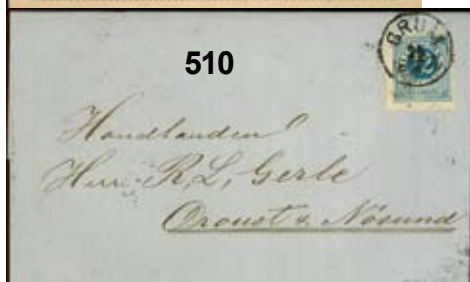 510
Handlanden
Herr R, L, Gerle
Oroust & Nösund